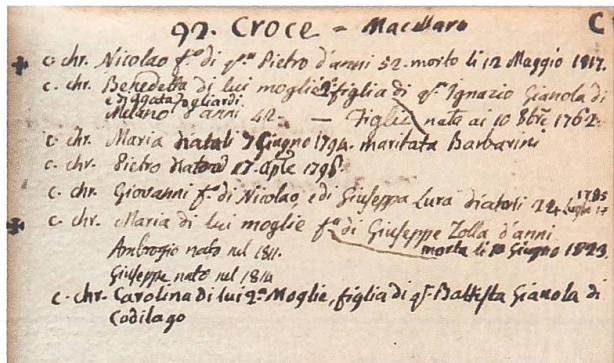 92. Croce = Macellaro C
c. chr. Nicolao f.º di q.m Pietro d'anni 52. morto li 12 Maggio 1817.
c. chr. Benedetta di lui moglie 2ª figlia di q.m Ignazio Gianola di
e di Agata Fogliardi
Milano d'anni 42 — Figlie nata ai 10 8bre 1762.
c. chr. Maria di 7 Giugno 1794. maritata Barbarini
c. chr. Pietro 17. Aple 1798
c. chr. Giovanni f.º di Nicolao, e di Giuseppa Lura di 24 Luglio 1785
c. chr. Maria di lui moglie f.ª di Giuseppe Zolla d'anni
Ambrogio nato nel 1811. morta li 10 Giugno 1823.
Giuseppe nato nel 1814
c. chr. Carolina di lui 2ª Moglie, figlia di q.m Battista Gianola di
Codilago